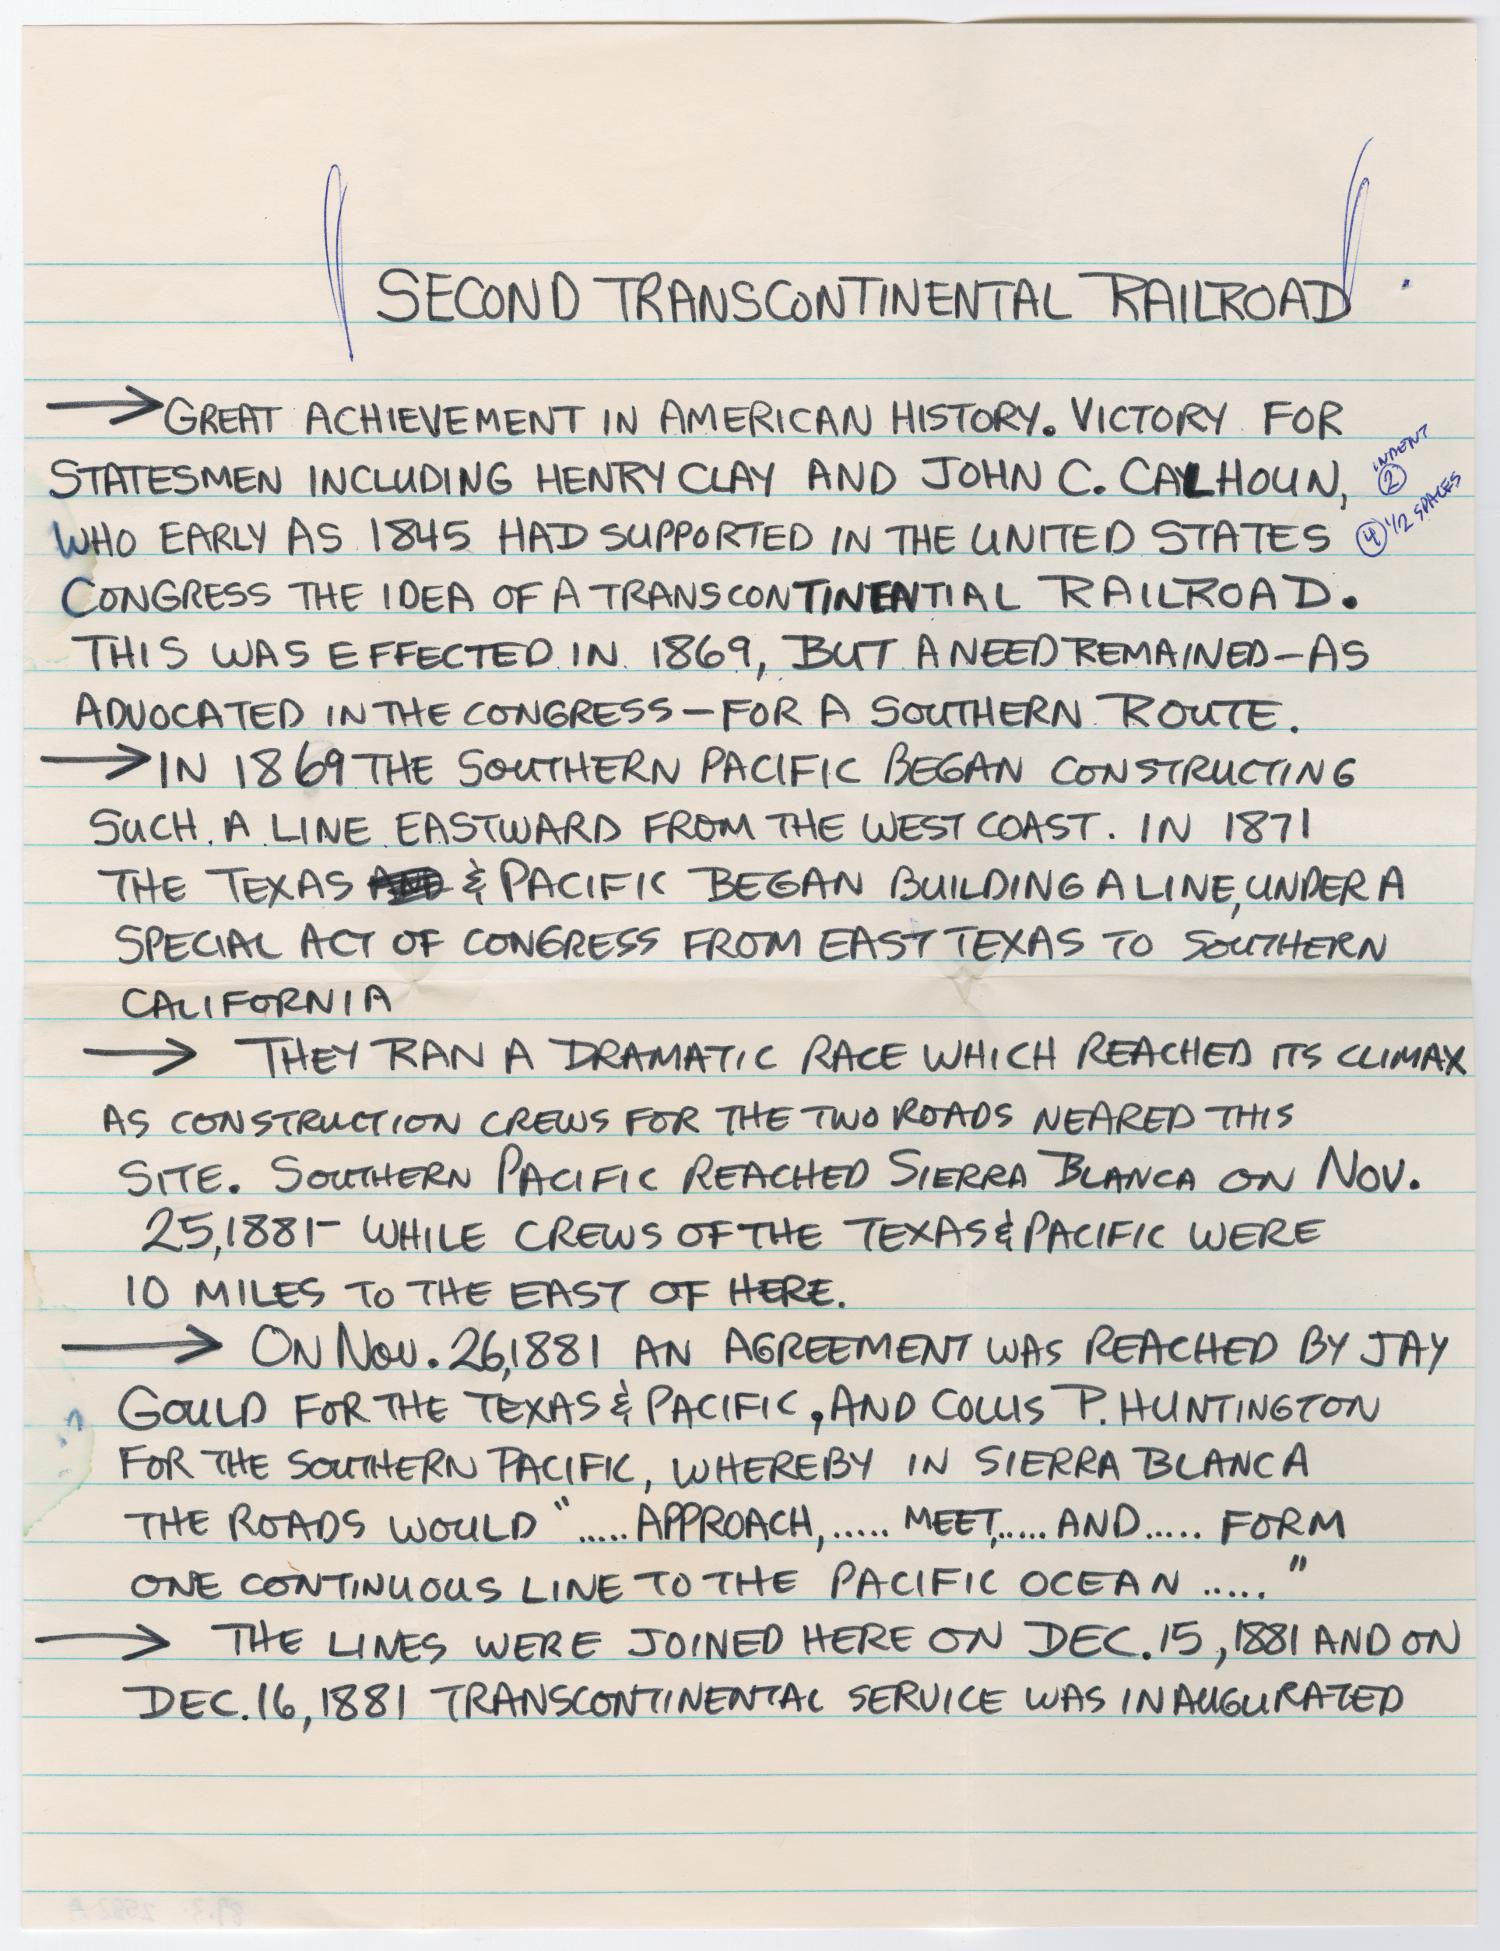 SECOND TRANSCONTINENTAL RAILROAD
→ GREAT ACHIEVEMENT IN AMERICAN HISTORY. VICTORY FOR
STATESMEN INCLUDING HENRY CLAY AND JOHN C. CALHOUN,
INDENT
2
WHO EARLY AS 1845 HAD SUPPORTED IN THE UNITED STATES
4 1/2 SPACES
CONGRESS THE IDEA OF A TRANSCONTINENTIAL RAILROAD.
THIS WAS EFFECTED IN 1869, BUT A NEED REMAINED—AS
ADVOCATED IN THE CONGRESS—FOR A SOUTHERN ROUTE.
→ IN 1869 THE SOUTHERN PACIFIC BEGAN CONSTRUCTING
SUCH A LINE EASTWARD FROM THE WEST COAST. IN 1871
THE TEXAS & PACIFIC BEGAN BUILDING A LINE, UNDER A
SPECIAL ACT OF CONGRESS FROM EAST TEXAS TO SOUTHERN
CALIFORNIA
→ THEY RAN A DRAMATIC RACE WHICH REACHED ITS CLIMAX
AS CONSTRUCTION CREWS FOR THE TWO ROADS NEARED THIS
SITE. SOUTHERN PACIFIC REACHED SIERRA BLANCA ON NOV.
25, 1881- WHILE CREWS OF THE TEXAS & PACIFIC WERE
10 MILES TO THE EAST OF HERE.
→ ON NOV. 26, 1881 AN AGREEMENT WAS REACHED BY JAY
GOULD FOR THE TEXAS & PACIFIC, AND COLLIS P. HUNTINGTON
FOR THE SOUTHERN PACIFIC, WHEREBY IN SIERRA BLANCA
THE ROADS WOULD "..... APPROACH, ..... MEET, ..... AND ..... FORM
ONE CONTINUOUS LINE TO THE PACIFIC OCEAN ....."
→ THE LINES WERE JOINED HERE ON DEC. 15, 1881 AND ON
DEC. 16, 1881 TRANSCONTINENTAL SERVICE WAS INAUGURATED